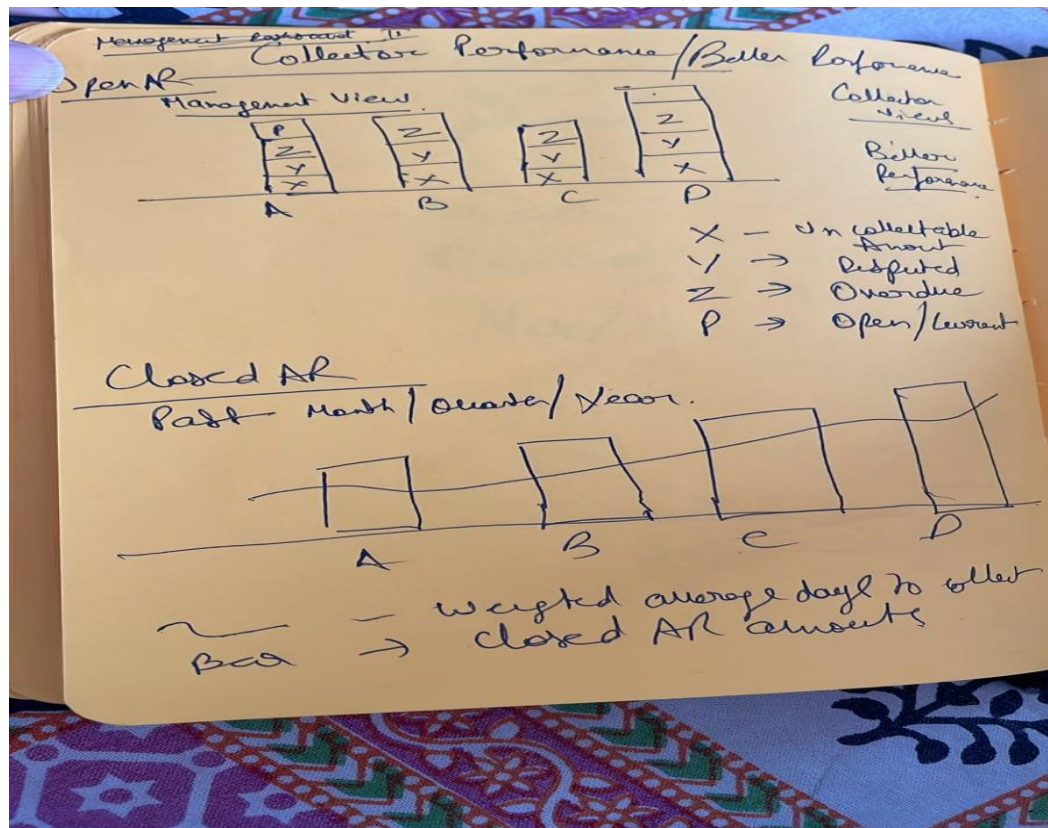 Management Dashboard II
Collector Performance/Biller Performance
Open AR
Management View.
Collector
Views
Biller
Performance
P
Z Z Z Z
Y Y Y Y
X X X X
A B C D
X – Uncollectable
Amout
Y → Disputed
Z → Overdue
P → Open/Current
Closed AR
Past Month/Quarter/Year.
A B C D
– weigted average days to collect
Bar → Closed AR amounts